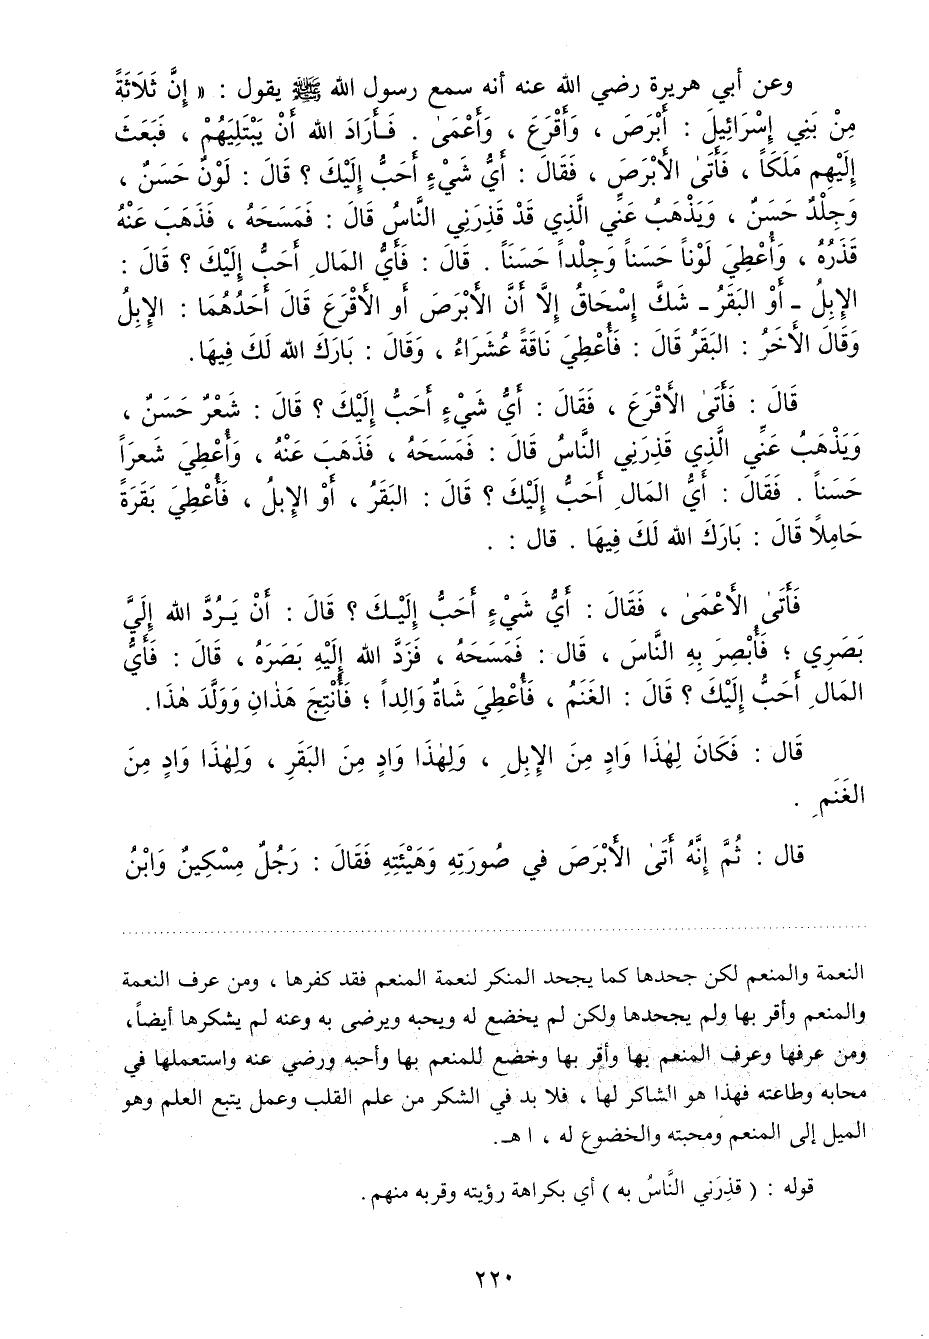 وعن أبي هريرة رضي الله عنه أنه سمع رسول الله ﷺ يقول : « إِنَّ ثَلَاثَةً
مِنْ بَنِي إِسْرَائِيلَ : أَبْرَصَ ، وَأَقْرَعَ ، وَأَعْمَىٰ . فَأَرَادَ الله أَنْ يَبْتَلِيَهُمْ ، فَبَعَثَ
إِلَيْهِم مَلَكَاً ، فَأَتَىٰ الأَبْرَصَ ، فَقَالَ : أَيُّ شَيْءٍ أَحَبُّ إِلَيْكَ ؟ قَالَ : لَوْنٌ حَسَنٌ ،
وَجِلْدٌ حَسَنٌ ، وَيَذْهَبُ عَنِّي الَّذِي قَدْ قَذِرَنِي النَّاسُ قَالَ : فَمَسَحَهُ ، فَذَهَبَ عَنْهُ
قَذَرُهُ ، وَأُعْطِيَ لَوْناً حَسَناً وَجِلْداً حَسَنَاً . قَالَ : فَأَيُّ المَالِ أَحَبُّ إِلَيْكَ ؟ قَالَ :
الإِبِلُ ـ أَوْ البَقَرُ ـ شَكَّ إِسْحَاقُ إِلَّا أَنَّ الأَبْرَصَ أو الأَقْرَعَ قَالَ أَحَدُهُمَا : الإِبِلُ
وَقَالَ الأَخَرُ : البَقَرُ قَالَ : فَأُعْطِيَ نَاقَةً عُشَرَاءُ ، وَقَالَ : بَارَكَ الله لَكَ فِيهَا.
قَالَ : فَأَتَىٰ الأَقْرَعَ ، فَقَالَ : أَيُّ شَيْءٍ أَحَبُّ إِلَيْكَ ؟ قَالَ : شَعْرٌ حَسَنٌ ،
وَيَذْهَبُ عَنِّي الَّذِي قَذِرَنِي النَّاسُ قَالَ : فَمَسَحَهُ ، فَذَهَبَ عَنْهُ ، وَأُعْطِيَ شَعراً
حَسَناً . فَقَالَ : أَيُّ المَالِ أَحَبُّ إِلَيْكَ ؟ قَالَ : البَقَرُ ، أَوْ الإِبلُ ، فَأُعْطِيَ بَقَرَةً
حَامِلاً قَالَ : بَارَكَ الله لَكَ فِيهَا . قال : .
فَأَتَىٰ الأَعْمَىٰ ، فَقَالَ : أَيُّ شَيْءٍ أَحَبُّ إِلَيْكَ ؟ قَالَ : أَنْ يَرُدَّ الله إِلَيَّ
بَصَرِي ؛ فَأُبْصِرَ بِهِ النَّاسَ ، قَال : فَمَسَحَهُ ، فَرَدَّ الله إِلَيْهِ بَصَرَهُ ، قَالَ : فَأَيُّ
المَالِ أَحَبُّ إِلَيْكَ ؟ قَالَ : الغَنَمُ ، فَأُعْطِيَ شَاةً وَالِداً ؛ فَأَنْتِجَ هَذَانِ وَوَلَّدَ هٰذَا.
قَال : فَكَانَ لِهٰذَا وَادٍ مِنَ الإِبِلِ ، وَلِهٰذَا وَادٍ مِنَ البَقَرِ ، وَلِهٰذَا وَادٍ مِنَ
الغَنَمِ .
قال : ثُمَّ إِنَّهُ أَتَىٰ الأَبْرَصَ في صُورَتِهِ وَهَيْئَتِهِ فَقَالَ : رَجُلٌ مِسْكِينٌ وَابْنُ
النعمة والمنعم لكن جحدها كما يجحد المنكر لنعمة المنعم فقد كفرها ، ومن عرف النعمة
والمنعم وأقر بها ولم يجحدها ولكن لم يخضع له ويحبه ويرضى به وعنه لم يشكرها أيضاً،
ومن عرفها وعرف المنعم بها وأقر بها وخضع للمنعم بها وأحبه ورضي عنه واستعملها في
محابه وطاعته فهذا هو الشاكر لها ، فلا بد في الشكر من علم القلب وعمل يتبع العلم وهو
الميل إلى المنعم ومحبته والخضوع له ، ا هـ.
قوله : ( قذِرَني النَّاسُ به ) أي بكراهة رؤيته وقربه منهم.
٢٢٠